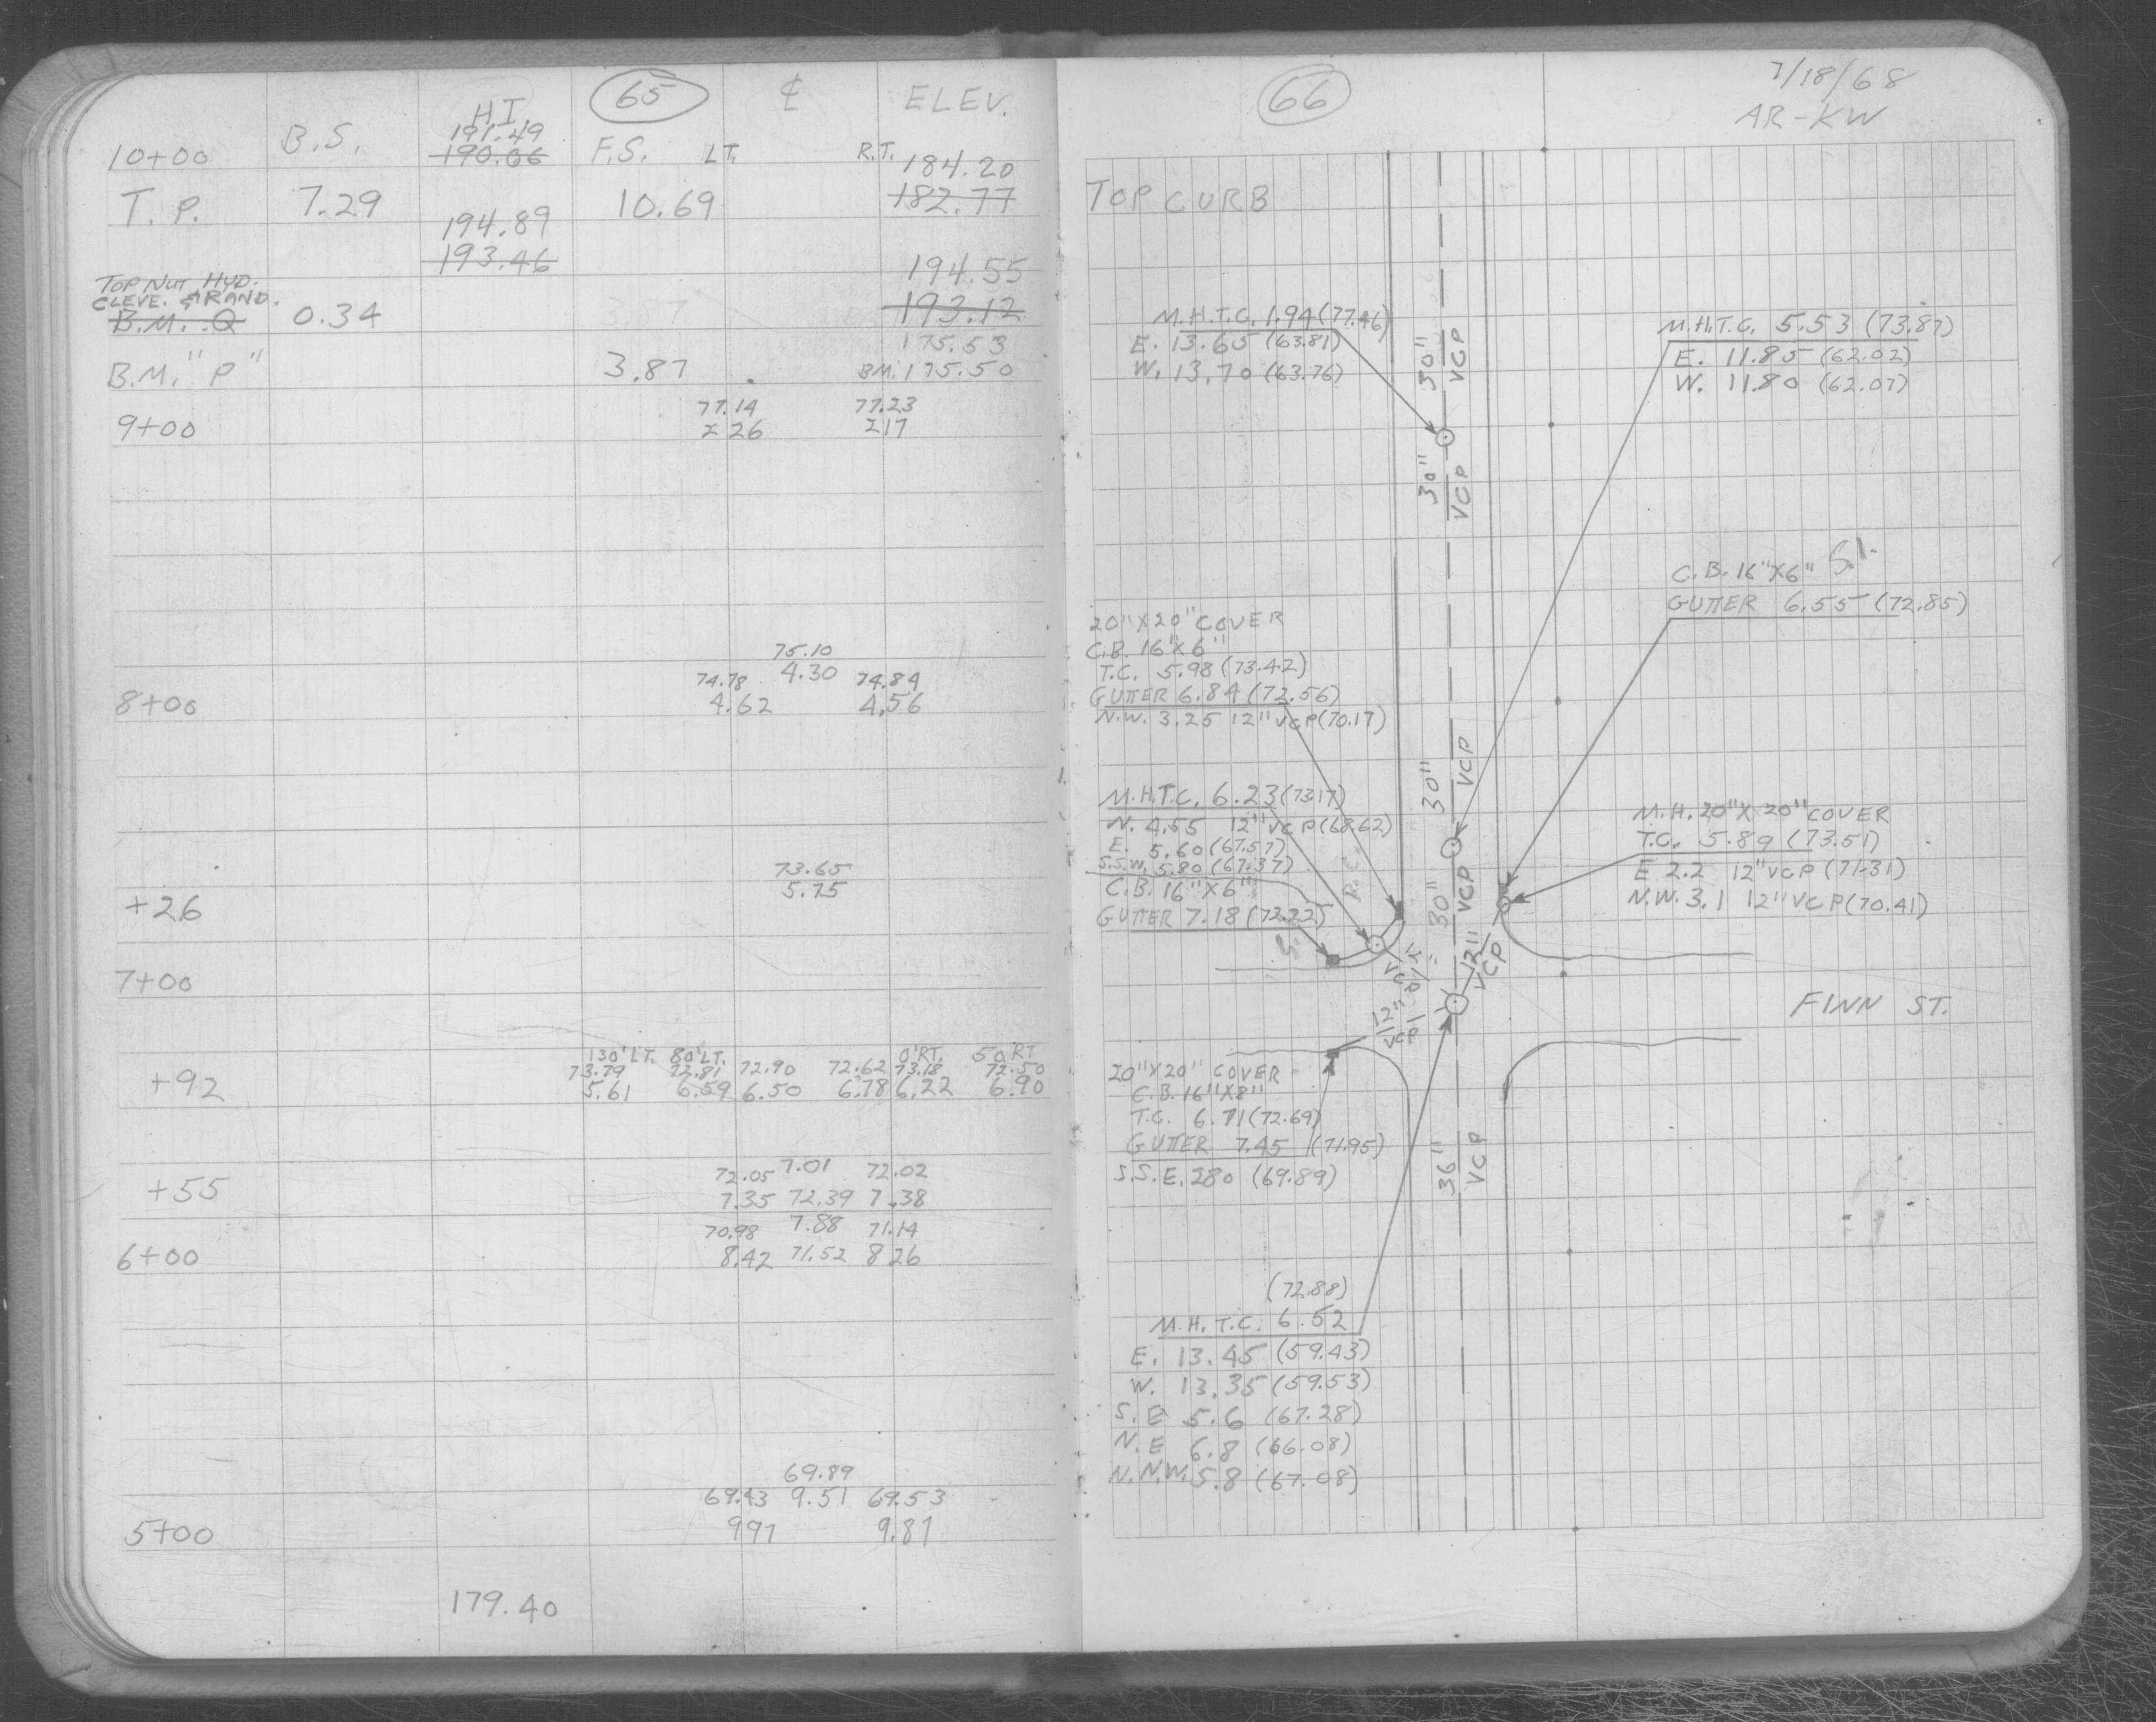 65
B.S.
HI
F.S. LT. ₵ R.T.
ELEV.
10+00 191.49
190.06
184.20
T.P. 7.29 10.69 182.77
194.89
193.46
194.55
TOP NUT HYD.
CLEVE. & RAND.
B.M. Q 0.34 193.12
175.53
B.M. "P" 3.87 BM. 175.50
77.14 77.23
9+00 2 26 2 17
75.10
74.78 4.30 74.84
8+00 4.62 4.56
73.65
+26 5.75
7+00
130' LT. 80' LT. 0' RT. 50 RT
73.79 72.81 72.90 72.62 73.18 72.50
+92 5.61 6.59 6.50 6.78 6.22 6.90
72.05 7.01 72.02
+55 7.35 72.39 7.38
70.98 7.88 71.14
6+00 8.42 71.52 8 26
69.89
69.43 9.51 69.53
5+00 997 9.87
179.40
66
7/18/68
AR-KW
TOP CURB
M.H.T.C. 1.94 (77.46)
E. 13.65 (63.81)
W. 13.70 (63.76)
30"
VCP
30"
VCP
M.H.T.C. 5.53 (73.87)
E. 11.85 (62.02)
W. 11.80 (62.07)
C.B. 16"X6"
GUTTER 6.55 (72.85)
20"X20" COVER
C.B. 16"X6"
T.C. 5.98 (73.42)
GUTTER 6.84 (72.56)
N.W. 3.25 12" VCP (70.17)
30"
VCP
M.H.T.C. 6.23 (73.17)
N. 4.55 12" VCP (68.62)
E. 5.60 (67.57)
S.S.W. 5.80 (67.37)
C.B. 16"X6"
GUTTER 7.18 (72.22)
30"
VCP
M.H. 20"X 20" COVER
T.C. 5.89 (73.51)
E 2.2 12" VCP (71.31)
N.W. 3.1 12" VCP (70.41)
12"
VCP
12"
VCP
FINN ST.
20"X20" COVER
C.B. 16"X8"
T.C. 6.71 (72.69)
GUTTER 7.45 (71.95)
S.S.E. 280 (69.89)
36"
VCP
(72.88)
M.H. T.C. 6.52
E. 13.45 (59.43)
W. 13.35 (59.53)
S.E 5.6 (67.28)
N.E 6.8 (66.08)
N.N.W. 5.8 (67.08)